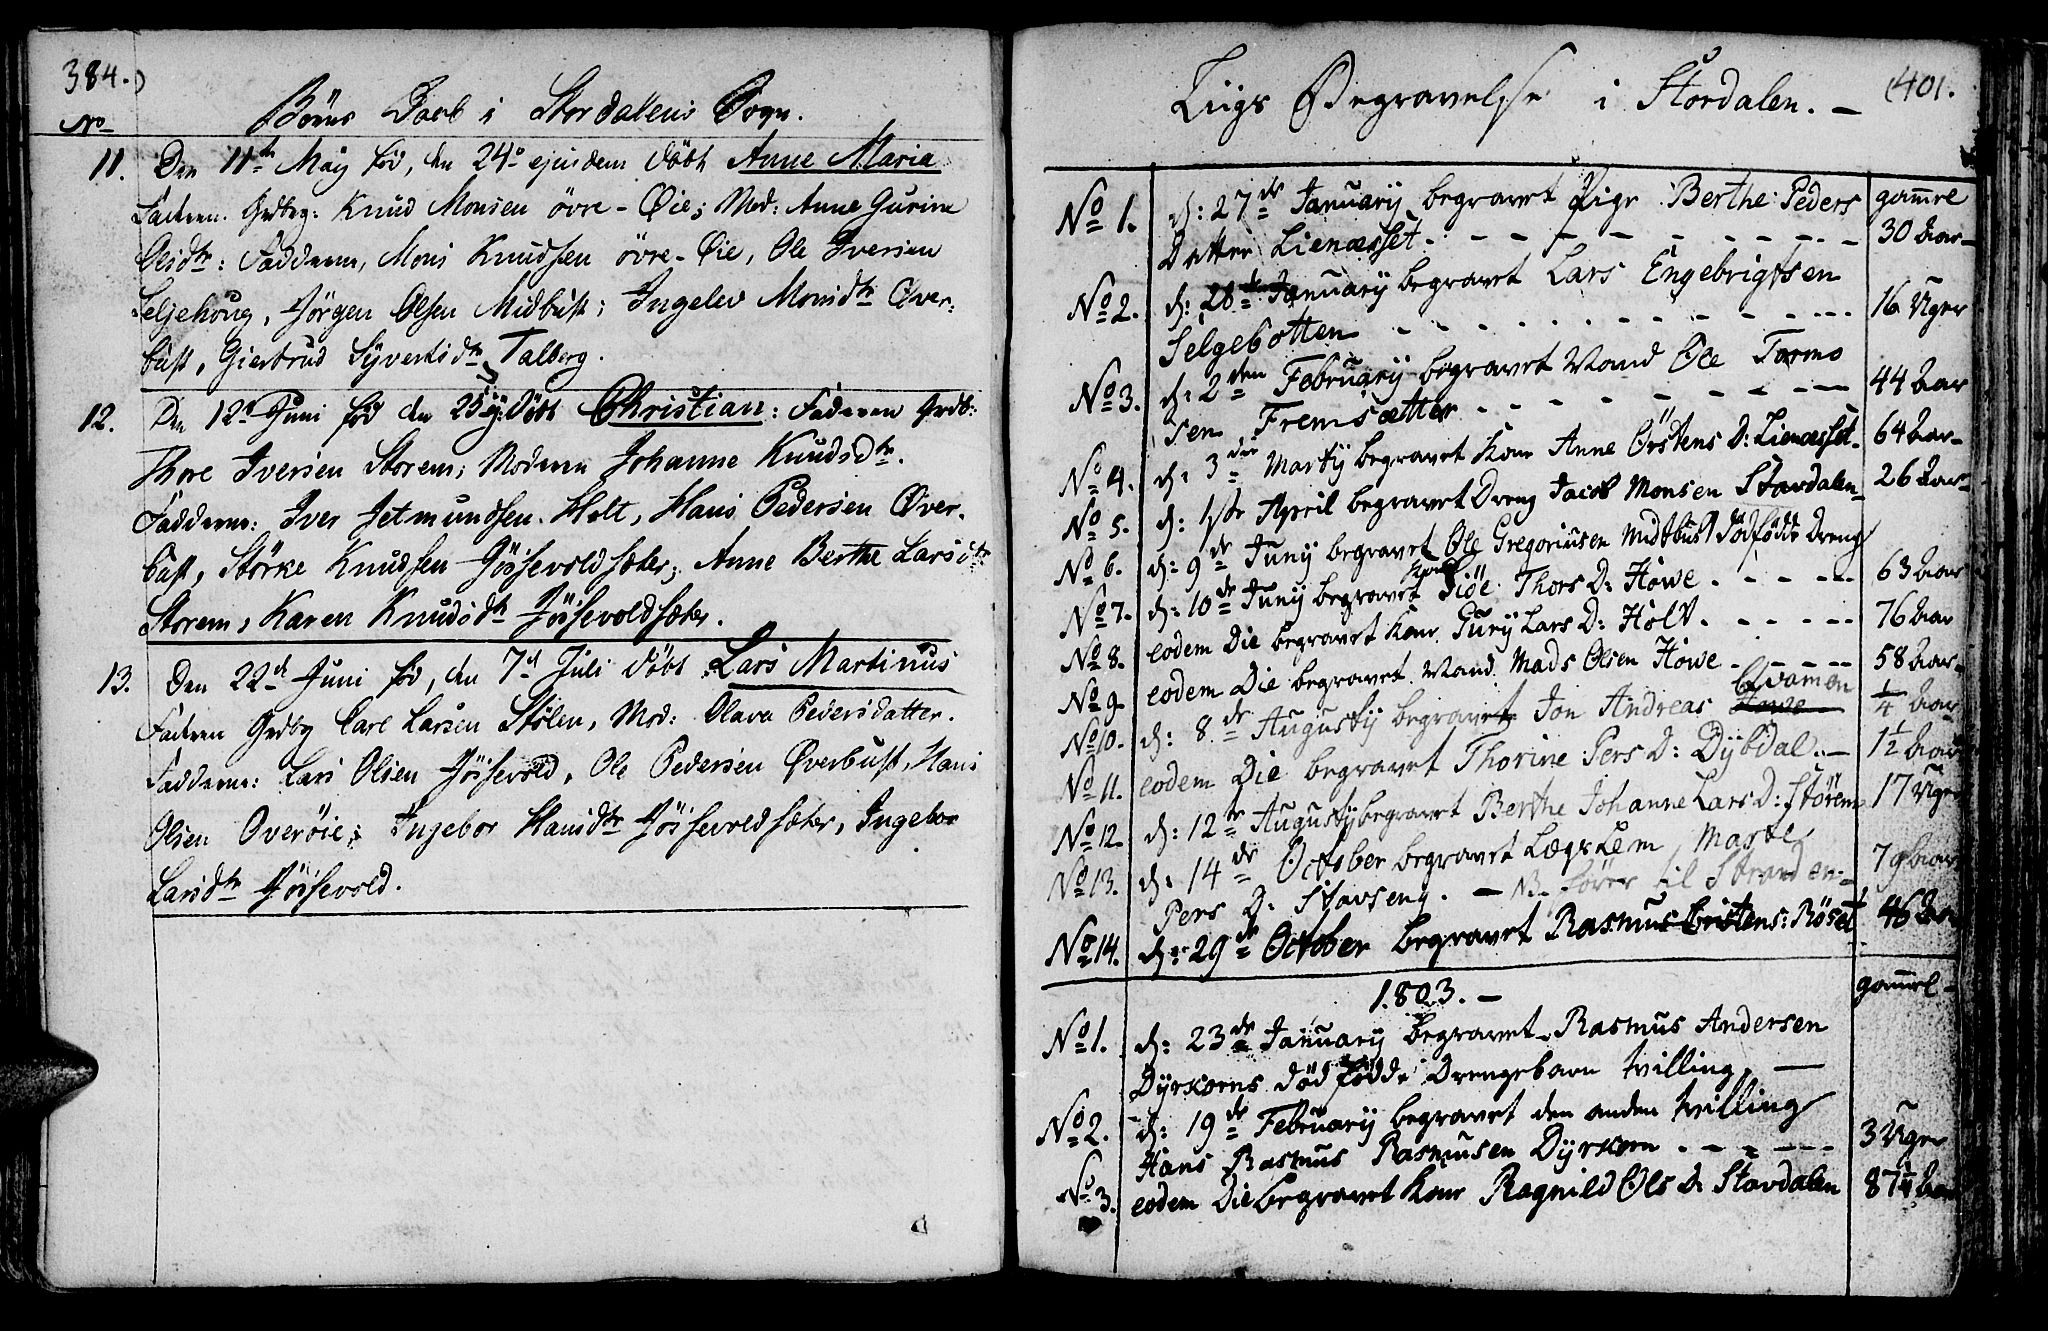 384.)
Börns Daab i Stordalens Sogn.
No
11. Den 11te May fød, den 24de ejusdem døbt Anne Maria
Faderen Grdbrg: Knud Monsen övre-Øie; Mod: Anne Gurine
Olsdtr: Faddeerne, Mons Knudsen övre-Øie, Ole Iversen
Seljehoug, Jörgen Olsen Midbust; Ingeler Monsdtr Over-
bust, Giertrud Syvertsdtr Talberg.
12. Den 12te Juni fød den döbt Christian: Faderen Grdb:
Thore Iversen Storem; Moderen Johanne Knudsdtr.
Fadderne: Iver Jetmundsen Holt, Hans Pedersen Over-
bust, Störke Knudsen Jössevoldsæter; Anne Berthe Larsdtr
Storem, Karen Knudsdtr Jössevoldsæter.
13. Den 22de Juni fød, den 7de Juli döbt Lars Martinus
Faderen Grdbg Carl Larsen Stölen, Mod: Olava Pedersdatter.
Fadderne: Lars Olsen Jössevold, Ole Pedersen Overbust, Hans
Olsen Overöie; Ingebor Hansdtr Jössevoldsæter, Ingebor
Larsdtr Jössevold.
(401.
Liigs Begravelse i Stordalen. -
No 1. d: 27de January begravet Pige Berthe Peders gamel
Datter Lienæsset. - - - - - - - - - 30 Aar
No 2. d: 28de January begravet Lars Engebrigtsen
Selgebotten - - - - - - - - - - 16 Uger
No 3. d: 2den February begravet Mand Ole Tormo
sen Fremsætter - - - - - - - - 44 Aar
No 4. d: 3die Marty begravet Kone Anne Örstens D: Lienæsset. 64 Aar
No 5. d: 1ste April begravet Dreng Jacob Monsen Stavdalen 26 Aar
No 6. d: 9de Juny begravet Ole Gregoriusen Midtbust dödfödde Dreng
No 7. d: 10de Juny begravet Kone Siöe Thors D: Howe. - - - - - 63 Aar
No 8. eodem Die begravet Kone Gury Lars D: Holt. - - - - - 76 Aar
No 9 eodem Die begravet Mand Mads Olsen Howe - - - - - 58 Aar
No 10. d: 8de Augusty begravet Jon Andreas Howe Qvamen 1/4 Aar
No 11. eodem Die begravet Thorine Pers D: Dybdal. - 1 1/2 Aar
No 12. d: 12te Augusty begravet Berthe Johanne Lars D: Störem 17 Uger
No 13. d: 14de October begravet Lægslem Marte
Pers D: Stavseng. - NB hörer til Stranden - 79 Aar
No 14. d: 29de October begravet Rasmus Cristens: Röset 46 Aar
1803. - gamel -
No 1. d: 23de January begravet Rasmus Andersen
Dyrkorns dödfödde Drengebarn tvilling, -
No 2. d: 19de February begravet den anden tvilling
Hans Rasmus Rasmusen Dyrkorn - - - - - - 3 Uger
No 3. eodem Die begravet Kone Ragnild Ols D: Stavdalen 87 1/4 Aar